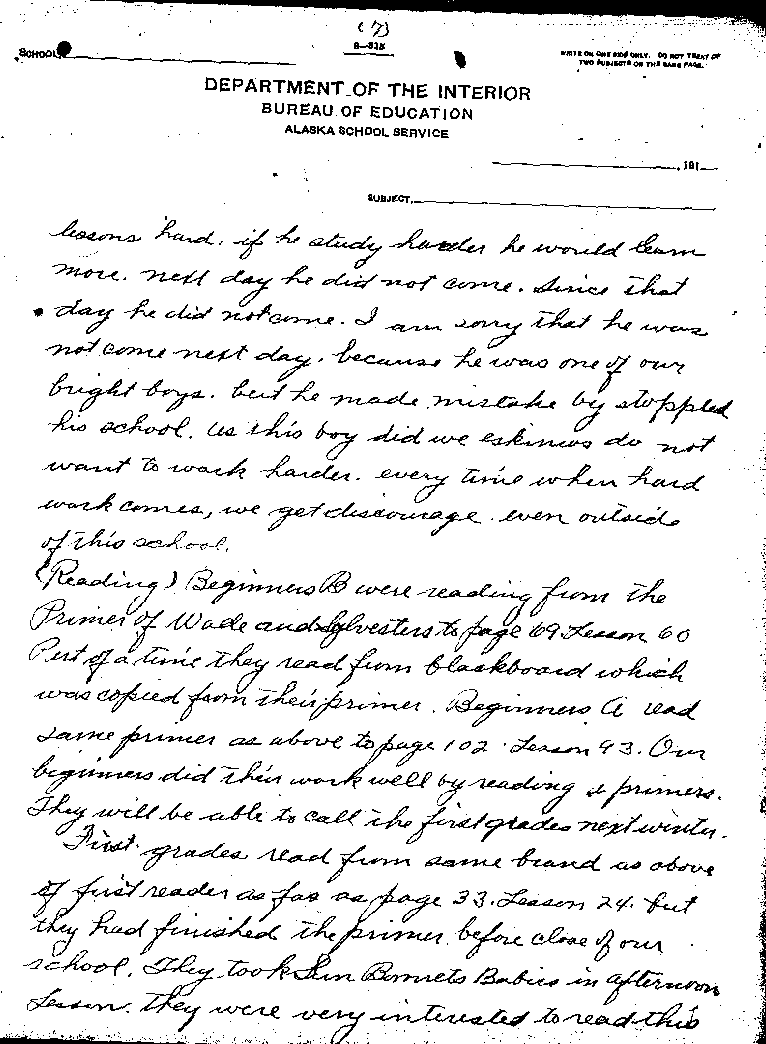 (7)
8-515
SCHOOL,
WRITE ON ONE SIDE ONLY. DO NOT TREAT OF
TWO SUBJECTS ON THE SAME PAGE.
DEPARTMENT OF THE INTERIOR
BUREAU OF EDUCATION
ALASKA SCHOOL SERVICE
, 191
SUBJECT,
lessons hard. if he study harder he would learn
more. next day he did not come. since that
day he did not come. I am sorry that he was
not come next day. because he was one of our
bright boys. but he made mistake by stoppled
his school. as this boy did we eskimos do not
want to work harder. every time when hard
work comes, we get discourage even outside
of this school.
(Reading) Beginners B were reading from the
Primer of Wade and Sylvesters to page 69 Lesson 60
Part of a time they read from blackboard which
was copied from their primer. Beginners A read
same primer as above to page 102 Lesson 93. Our
beginners did their work well by reading primers.
They will be able to call the first grades next winter.
First grades read from same brand as above
of first reader as far as page 33. Lesson 24. but
they had finished the primer before close of our
school. They took Sun Bonnets Babies in afternoon
Lesson. they were very interested to read this